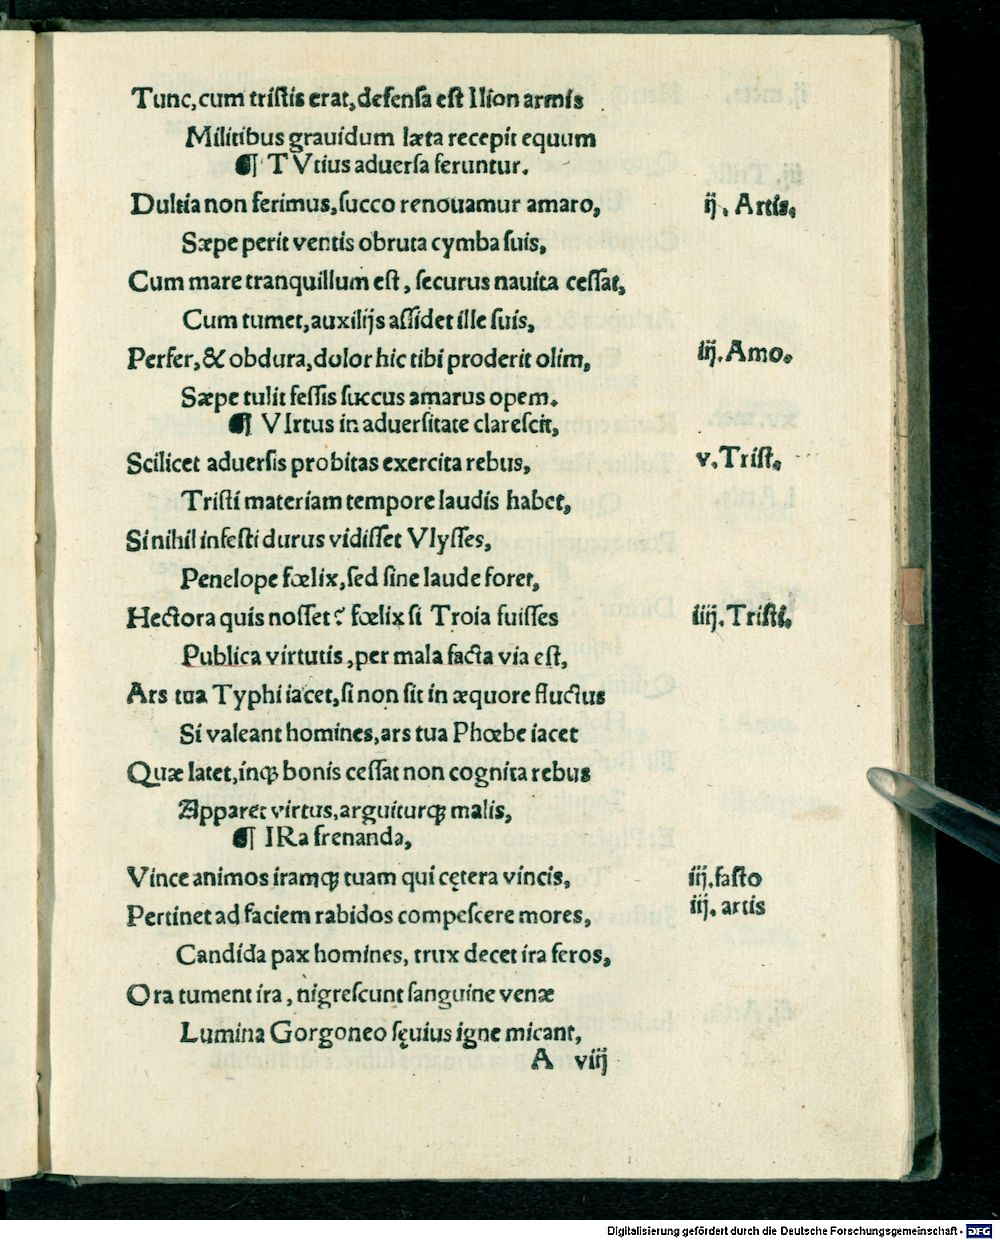 Tunc,cum tristis erat,defensa est Ilion armis
Militibus grauidum læta recepit equum
¶ TVtius aduersa feruntur.
Dultia non ferimus,succo renouamur amaro, ij. Artis.
Sæpe perit ventis obruta cymba suis,
Cum mare tranquillum est, securus nauita cessat,
Cum tumet,auxilijs assidet ille suis,
Perfer,& obdura,dolor hic tibi proderit olim, iij.Amo.
Sæpe tulit fessis succus amarus opem.
¶ VIrtus in aduersitate clarescit,
Scilicet aduersis probitas exercita rebus, v.Trist.
Tristi materiam tempore laudis habet,
Si nihil infesti durus vidisset Vlysses,
Penelope fœlix,sed sine laude foret,
Hectora quis nosset? fœlix si Troia fuisses iiij.Tristi.
Publica virtutis,per mala facta via est,
Ars tua Typhi iacet,si non sit in æquore fluctus
Si valeant homines,ars tua Phœbe iacet
Quæ latet,inqꝫ bonis cessat non cognita rebus
Apparet virtus,arguiturqꝫ malis,
¶ IRa frenanda,
Vince animos iramqꝫ tuam qui cętera vincis, iij.fasto
Pertinet ad faciem rabidos compescere mores, iij. artis
Candida pax homines, trux decet ira feros,
Ora tument ira, nigrescunt sanguine venæ
Lumina Gorgoneo sęuius igne micant,
A viij
Digitalisierung gefördert durch die Deutsche Forschungsgemeinschaft - DFG